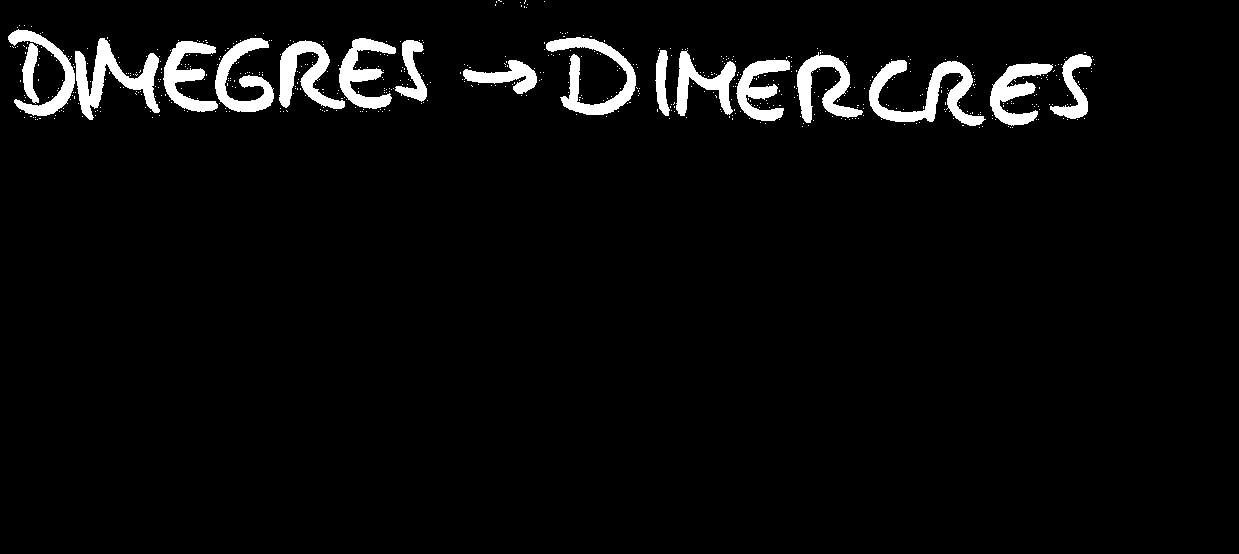 DIMEGRES → DIMERCRES